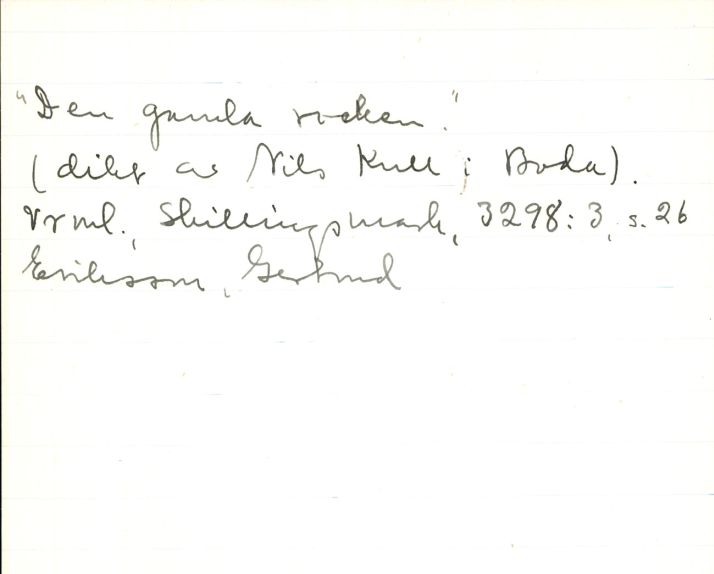 "Den gamla rocken."
(dikt av Nils Kull i Boda).
Vrml., Skillingsmark, 3298:3, s. 26
Eriksson, Gertrud